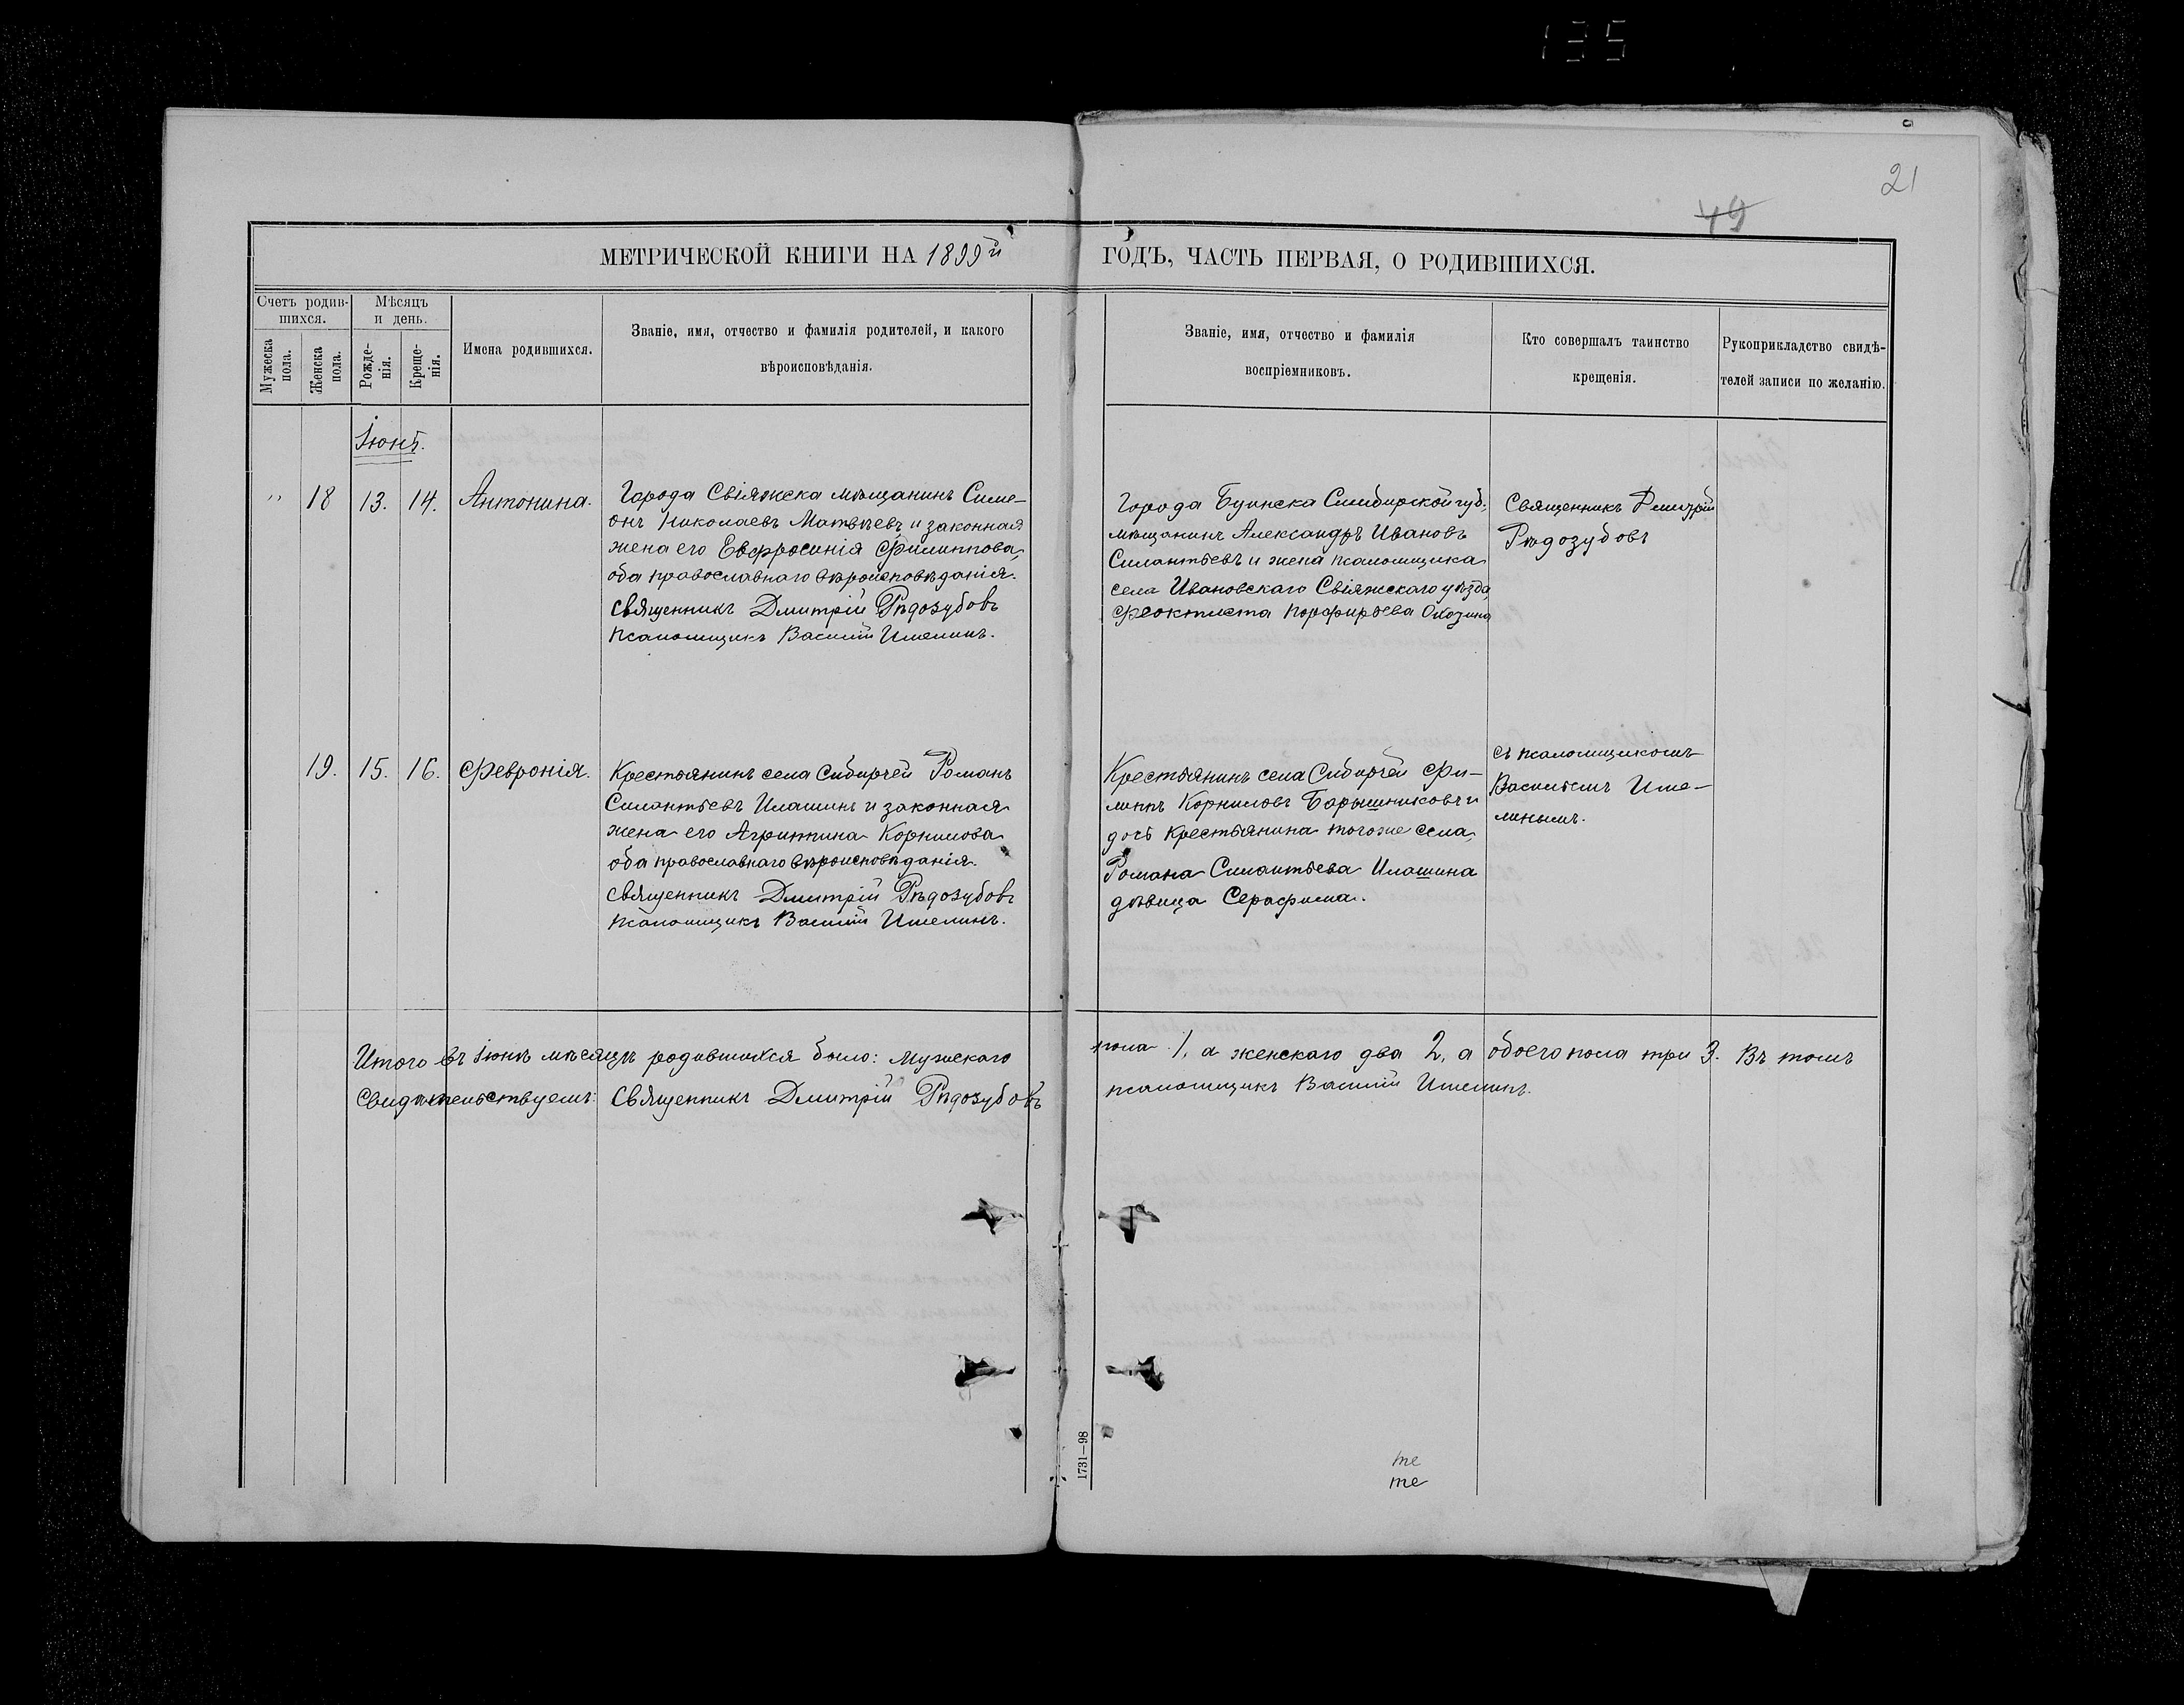 135
21
49
МЕТРИЧЕСКОЙ КНИГИ НА 1899й
ГОДЪ, ЧАСТЬ ПЕРВАЯ, О РОДИВШИХСЯ.
Счетъ родив-
шихся.
Мужеска
пола.
Женска
пола.
Мѣсяцъ
и день.
Рожде-
нія.
Креще-
нія.
Имена родившихся.
Званіе, имя, отчество и фамилія родителей, и какого
вѣроисповѣданія.
Званіе, имя, отчество и фамилія
воспріемниковъ.
Кто совершалъ таинство
крещенія.
Рукоприкладство свидѣ-
телей записи по желанію.
Іюнь.
" 18 13. 14. Антонина.
Города Свіяжска мѣщанинъ Симе-
онъ Николаевъ Матвѣевъ и законная
жена его Евфросинія Филиппова,
оба православнаго вѣроисповѣданія.
Священникъ Дмитрій Рѣдозубовъ
Псаломщикъ Василій Имелинъ.
Города Буинска Симбирской губ.
мѣщанинъ Александръ Ивановъ
Силантьевъ и жена псаломщика
села Ивановскаго Свіяжскаго уѣзда,
Феоктиста Порфирьева Охозина
Священникъ Дмитрій
Рѣдозубовъ
19. 15. 16. Февронія.
Крестьянинъ села Сибирчей Романъ
Силантьевъ Илашинъ и законная
жена его Агриппина Корнилова
оба православнаго вѣроисповѣданія.
Священникъ Дмитрій Рѣдозубовъ
Псаломщикъ Василій Имелинъ.
Крестьянинъ села Сибирчей Фи-
липпъ Корниловъ Барышниковъ и
дочь крестьянина того же села,
Романа Силантьева Илашина
дѣвица Серафима.
съ псаломщикомъ
Василіемъ Име-
линымъ.
Итого въ Іюнѣ мѣсяцѣ родившихся было: мужескаго
пола 1, а женскаго два 2, а обоего пола три 3. Въ томъ
свидѣтельствуемъ: Священникъ Дмитрій Рѣдозубовъ
псаломщикъ Василій Имелинъ.
1731—98
те
те